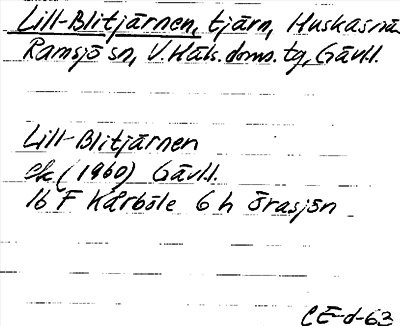 Lill-Blitjärnen, tjärn, Huskasnäs
Ramsjö sn, V.Häls.doms.tg, Gävl.l.
Lill-Blitjärnen
ek (1960) Gävl.l.
16 F Kårböle 6 h Örasjön
CE-d-63